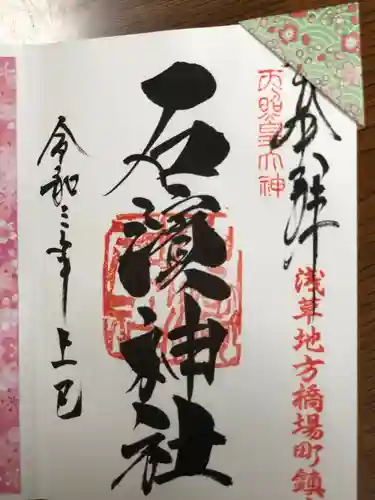 奉拝
天照皇大神
浅草地方橋場町鎮
石濱神社
令和三年上巳